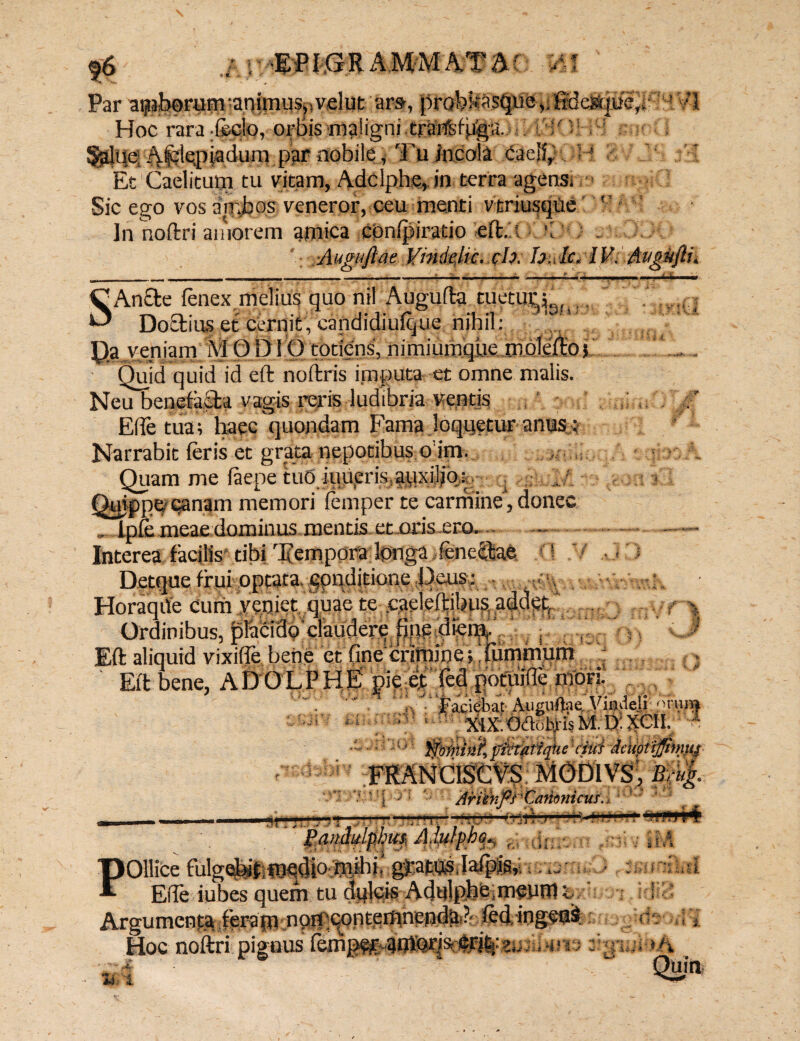 96 EPIGRAMMATA
Par amborum animus, velut ars, probitasque, fidesque,
Hoc rara seclo, orbis maligni transfuga.
Salue Asclepiadum par nobile, Tu incola caeli,
Et Caelitum tu vitam, Adelphe, in terra agens.
Sic ego vos ambos veneror, ceu menti vtriusque
In nostri amorem amica conspiratio est.
Augustae Vindelic. cIɔ. Iɔ. Ic. IV. Augusti.
SAncte senex melius quo nil Augusta tuetur,
Doctius et cernit, candidiusque nihil:
Da veniam MODIO totiens, nimiumque molesto;
Quid quid id est nostris imputa et omne malis.
Neu benefacta vagis reris ludibria ventis
Esse tua; haec quondam Fama loquetur anus;
Narrabit seris et grata nepotibus olim.
Quam me saepe tuo iuueris auxilio:
Quippe canam memori semper te carmine, donec
Ipse meae dominus mentis et oris ero.
Interea facilis tibi Tempora longa senectae
Detque frui optata conditione Deus:
Horaque cum veniet quae te caelestibus addet
Ordinibus, placido claudere fine diem.
Est aliquid vixisse bene et sine crimine; summum
Est bene, ADOLPHE pie et sed potuisse mori.
Faciebat Augustae Vindelicorum
XIX. Octobris M. D. XCII.
Nomini, pietatique eius deuotissimus
FRANCISCVS MODIVS, Brug.
Ariensis Canonicus.
Pandulphus Adulpho.
POllice fulgebit medio mihi gratus Iaspis,
Esse iubes quem tu dulcis Adulphe meum:
Argumenta feram non contemnenda? sed ingens
Hoc nostri pignus semper amoris erit:
Quin